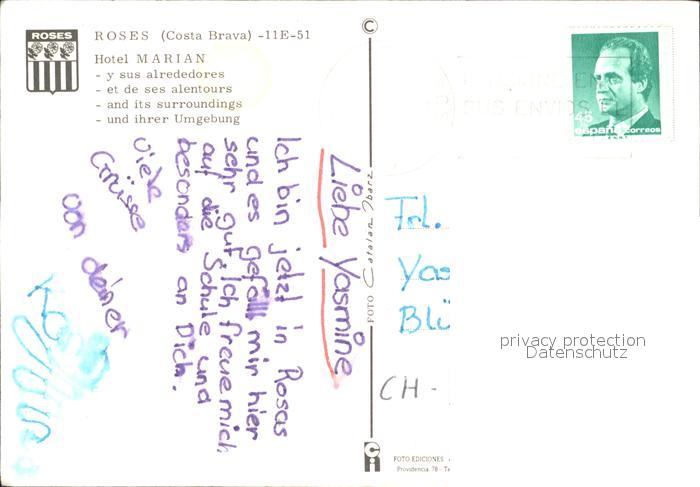 ROSES
ROSES (Costa Brava) -11E-51
Hotel MARIAN
- y sus alrededores
- et de ses alentours
- and its surroundings
- und ihrer Umgebung
Liebe Yasmine
Ich bin jetzt in Rosas
und es gefällt mir hier
sehr gut. Ich freue mich
auf die Schule und
besonders an Dich.
Viele
Grüsse
von deiner
©
FOTO
FOTO EDICIONES
Providencia, 78 - Te
SUS ENVIOS
45
españa correos
Frl.
Yas
Blü
CH -
privacy protection
Datenschutz